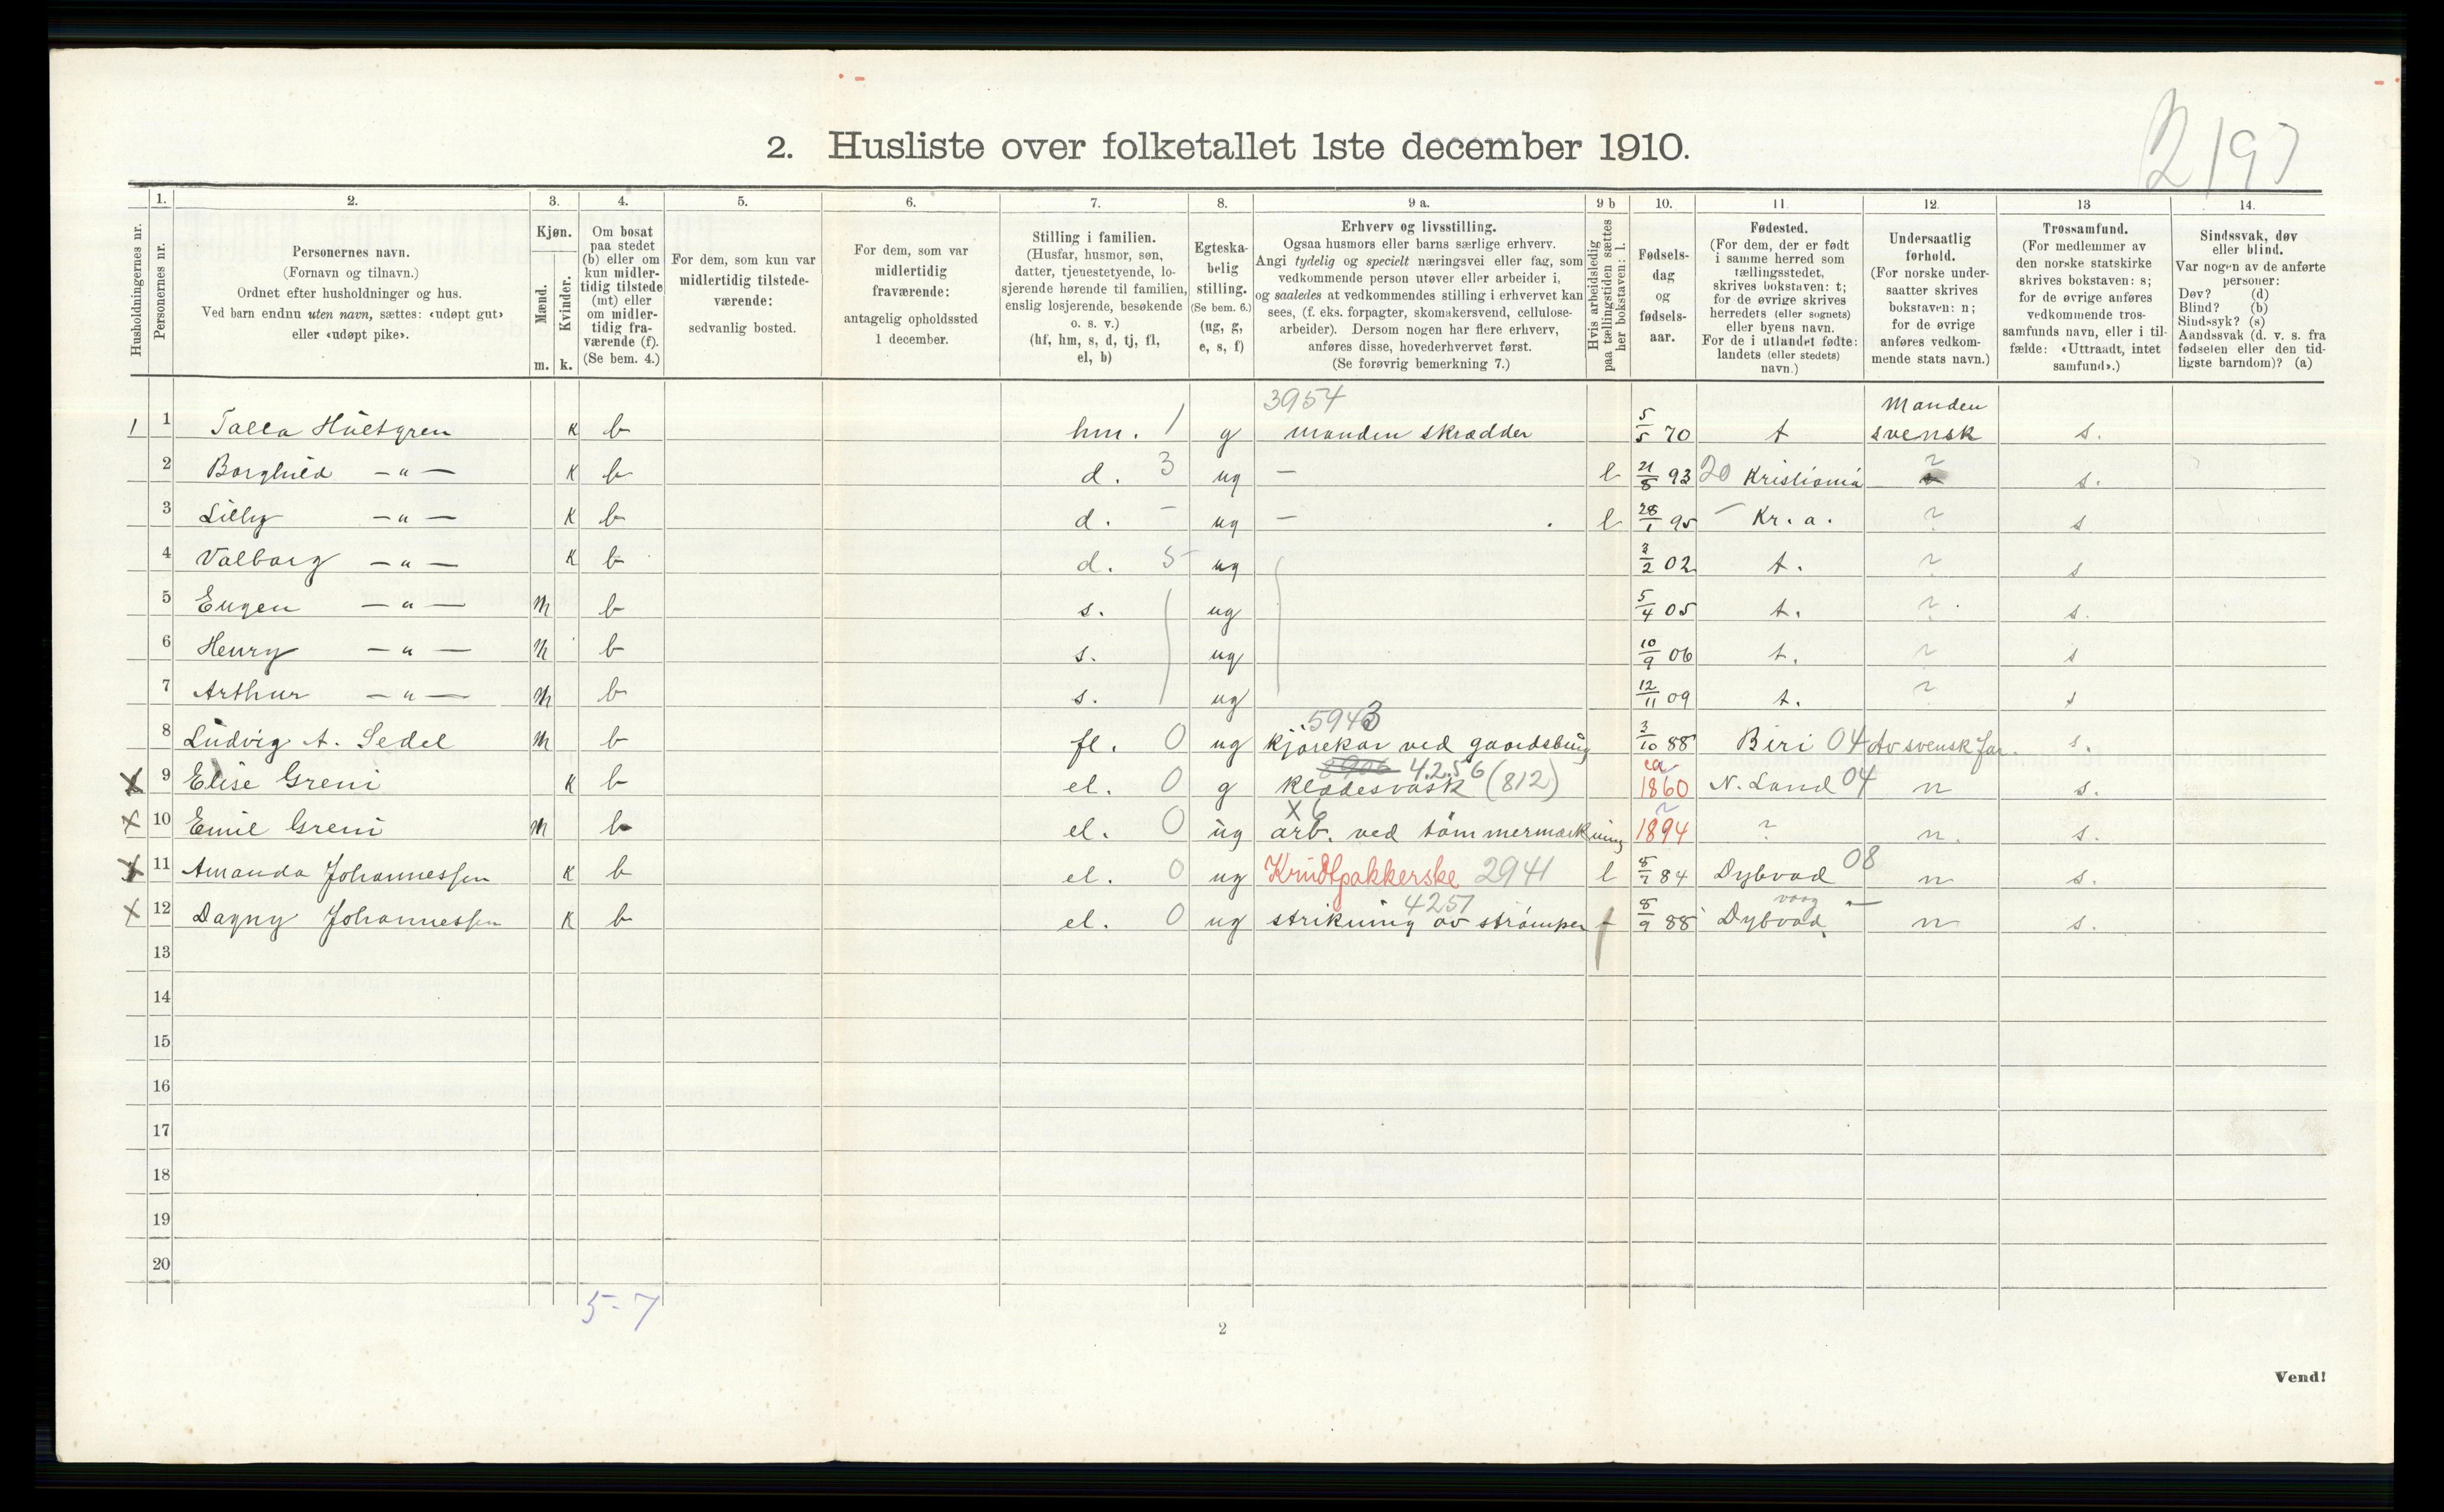 2197
2. Husliste over folketallet 1ste december 1910.
1. 2. 3. 4. 5. 6. 7. 8. 9 a. 9 b 10. 11. 12. 13 14.
Husholdningernes nr.
Personernes nr.
Personernes navn.
(Fornavn og tilnavn.)
Ordnet efter husholdninger og hus.
Ved barn endnu uten navn, sættes: «udøpt gut»
eller «udøpt pike».
Kjøn.
Mænd.
Kvinder.
m. k.
Om bosat
paa stedet
(b) eller om
kun midler-
tidig tilstede
(mt) eller
om midler-
tidig fra-
værende (f).
(Se bem. 4.)
For dem, som kun var
midlertidig tilstede-
værende:
sedvanlig bosted.
For dem, som var
midlertidig
fraværende:
antagelig opholdssted
1 december.
Stilling i familien.
(Husfar, husmor, søn,
datter, tjenestetyende, lo-
sjerende hørende til familien,
enslig losjerende, besøkende
o. s. v.)
(hf, hm, s, d, tj, fl,
el, b)
Egteska-
belig
stilling.
(Se bem. 6.)
(ug, g,
e, s, f)
Erhverv og livsstilling.
Ogsaa husmors eller barns særlige erhverv.
Angi tydelig og specielt næringsvei eller fag, som
vedkommende person utøver eller arbeider i,
og saaledes at vedkommendes stilling i erhvervet kan
sees, (f. eks. forpagter, skomakersvend, cellulose-
arbeider). Dersom nogen har flere erhverv,
anføres disse, hovederhvervet først.
(Se forøvrig bemerkning 7.)
Hvis arbeidsledig
paa tællingstiden sættes
her bokstaven: l.
Fødsels-
dag
og
fødsels-
aar.
Fødested.
(For dem, der er født
i samme herred som
tællingsstedet,
skrives bokstaven: t;
for de øvrige skrives
herredets (eller sognets)
eller byens navn.
For de i utlandet fødte:
landets (eller stedets)
navn.)
Undersaatlig
forhold.
(For norske under-
saatter skrives
bokstaven: n;
for de øvrige
anføres vedkom-
mende stats navn.)
Trossamfund.
(For medlemmer av
den norske statskirke
skrives bokstaven: s;
for de øvrige anføres
vedkommende tros-
samfunds navn, eller i til-
fælde: «Uttraadt, intet
samfund».)
Sindssvak, døv
eller blind.
Var nogen av de anførte
personer:
Døv? (d)
Blind? (b)
Sindssyk? (s)
Aandssvak (d. v. s. fra
fødselen eller den tid-
ligste barndom)? (a)
3954 Manden
1 1 Hultgren k b hm. 1 g manden skrædder 5/5 70 t svensk s.
2 Borghild — " — k b d. 3 ug — l 21/8 93 20 Kristiania ? s.
3 Lilly — " — k b d. - ug — l 28/1 95 - Kr. a. ? s
4 Valborg — " — k b d. 5 ug 3/2 02 t. ? s
5 Eugen — " — m b s. ug 5/4 05 t. ? s.
6 Henry — " — m b s. ug 10/9 06 t. ? s
7 Arthur — " — m b s. ug 12/11 09 t. ? s
5943
8 Ludvig A. Sedel m b fl. 0 ug kjørekar ved gaardsbrug 3/10 88 Biri 04 Av svensk far. s.
4256 ca
x 9 Elise Greni k b el. 0 g klædesvask (812) 1860 N. Land 04 n s.
x 6
x 10 Emil Greni m b el. 0 ug arb. ved tømmermerkning 1894 ? n. s.
x 11 Amanda Johannessen k b el. 0 ug Krudtpakkerske 2941 l 5/7 84 Dybvad 08 n s.
4257 vaag
x 12 Dagny Johannessen k b el. 0 ug strikning av strømper 8/9 88 Dybvad — n s.
13
14
15
16
17
18
19
20
5-7
2
Vend!